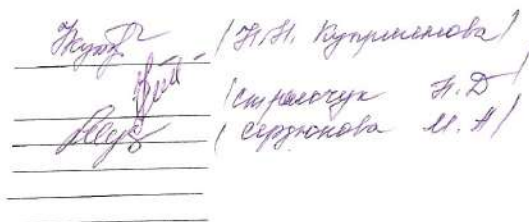 (Н.Н. Куприенова)
(Стрелочук Н.Д
(Сердюкова М.А)